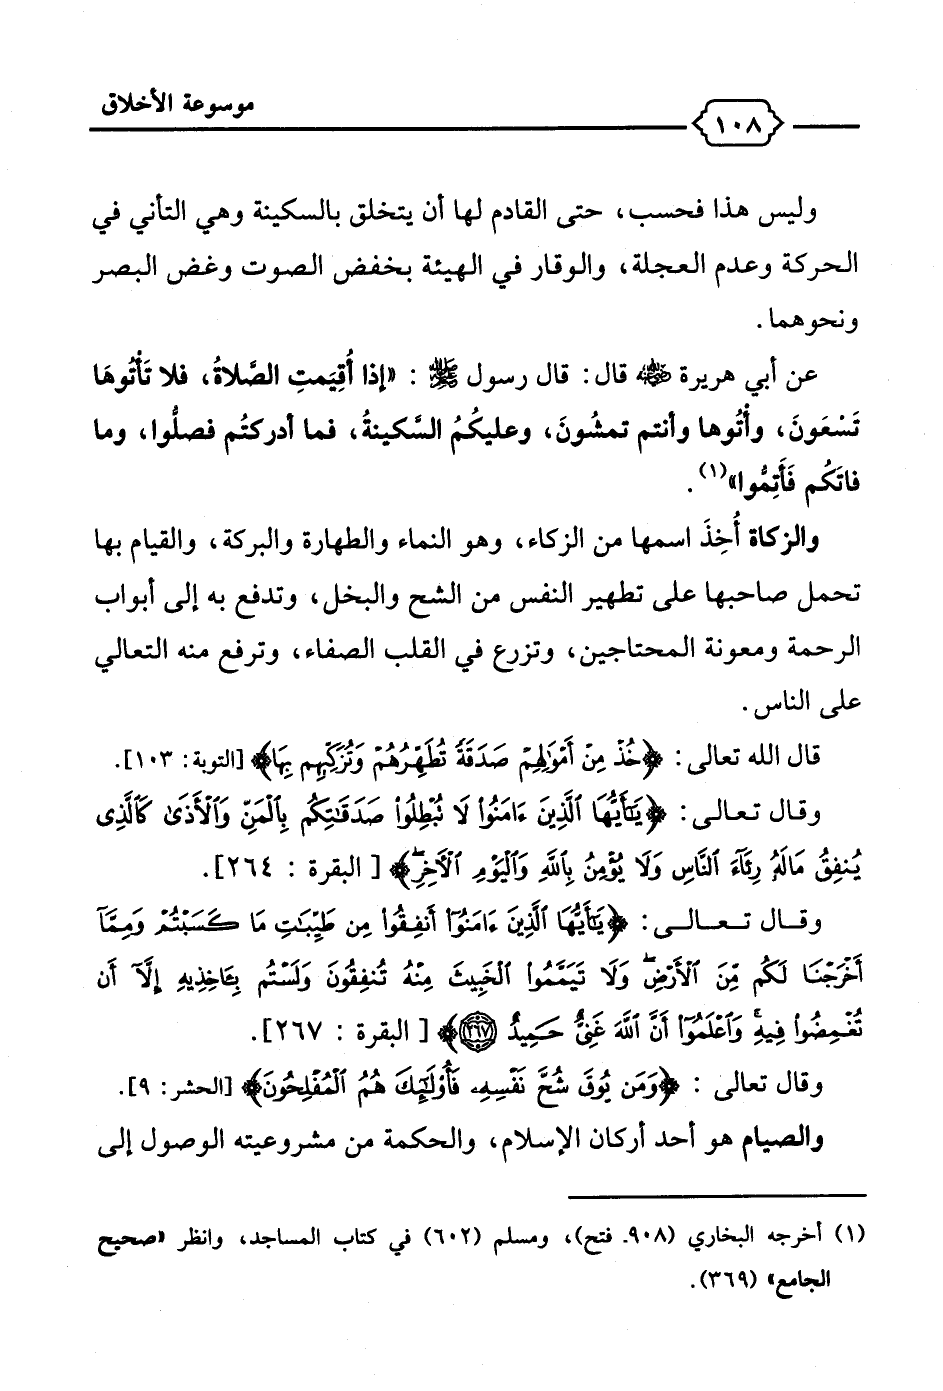 موسوعة الأخلاق
١٠٨
وليس هذا فحسب، حتى القادم لها أن يتخلق بالسكينة وهي التأني في
الحركة وعدم العجلة، والوقار في الهيئة بخفض الصوت وغض البصر
ونحوهما.
عن أبي هريرة رضي الله عنه قال: قال رسول ﷺ : «إذا أُقِيَمتِ الصَّلاةُ، فلا تَأْتُوهَا
تَسْعَونَ، وأْتُوها وأنتم تمشُونَ، وعليكُمُ السَّكينةُ، فما أدركتُم فصلُّوا، وما
فاتَكُم فَأَتِمُّوا»(١).
والزكاة أُخِذَ اسمها من الزكاء، وهو النماء والطهارة والبركة، والقيام بها
تحمل صاحبها على تطهير النفس من الشح والبخل، وتدفع به إلى أبواب
الرحمة ومعونة المحتاجين، وتزرع في القلب الصفاء، وترفع منه التعالي
على الناس.
قال الله تعالى: ﴿خُذْ مِنْ أَمْوَٰلِهِمْ صَدَقَةً تُطَهِّرُهُمْ وَتُزَكِّيهِم بِهَا﴾ [التوبة: ١٠٣].
وقال تعالى: ﴿يَٰٓأَيُّهَا ٱلَّذِينَ ءَامَنُوا۟ لَا تُبْطِلُوا۟ صَدَقَٰتِكُم بِٱلْمَنِّ وَٱلْأَذَىٰ كَٱلَّذِى
يُنفِقُ مَالَهُۥ رِئَآءَ ٱلنَّاسِ وَلَا يُؤْمِنُ بِٱللَّهِ وَٱلْيَوْمِ ٱلْءَاخِرِۖ﴾ [ البقرة : ٢٦٤].
وقال تعالى: ﴿يَٰٓأَيُّهَا ٱلَّذِينَ ءَامَنُوٓا۟ أَنفِقُوا۟ مِن طَيِّبَٰتِ مَا كَسَبْتُمْ وَمِمَّآ
أَخْرَجْنَا لَكُم مِّنَ ٱلْأَرْضِۖ وَلَا تَيَمَّمُوا۟ ٱلْخَبِيثَ مِنْهُ تُنفِقُونَ وَلَسْتُم بِـَٔاخِذِيهِ إِلَّآ أَن
تُغْمِضُوا۟ فِيهِۚ وَٱعْلَمُوٓا۟ أَنَّ ٱللَّهَ غَنِىٌّ حَمِيدٌ ٢٦٧﴾ [ البقرة : ٢٦٧].
وقال تعالى : ﴿وَمَن يُوقَ شُحَّ نَفْسِهِۦ فَأُو۟لَٰٓئِكَ هُمُ ٱلْمُفْلِحُونَ﴾ [الحشر: ٩].
والصيام هو أحد أركان الإسلام، والحكمة من مشروعيته الوصول إلى
(١) أخرجه البخاري (٩٠٨ـ فتح)، ومسلم (٦٠٢) في كتاب المساجد، وانظر «صحيح
الجامع» (٣٦٩).